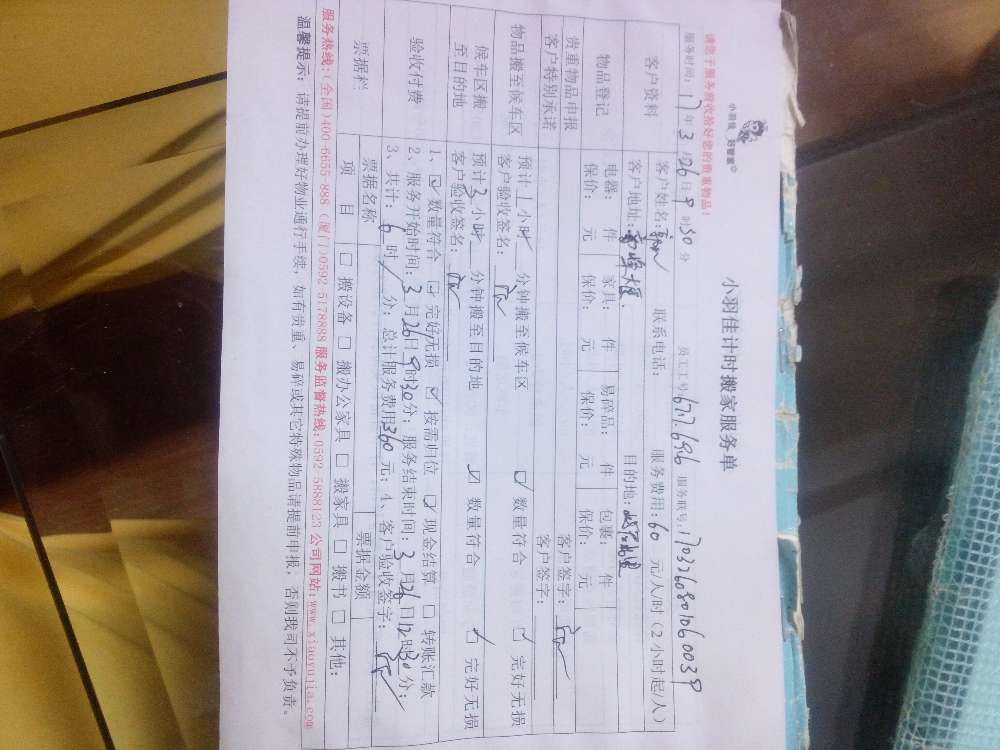 小羽佳 好管家
小羽佳计时搬家服务单
请您于服务前收拾好您的贵重物品!
服务时间: 17 年 3 月 26 日 9 时 30 分 员工工号: 677.696 服务联号: 170326080106 0039
客户资料 客户姓名: 联系电话: 服务费用: 60 元/人/时(2小时起/人)
客户地址: 目的地:
物品登记 电器: 件 家具: 件 易碎品: 件 包裹: 件
保价: 元 保价: 元 保价: 元 保价: 元
贵重物品申报 客户签字:
客户特别承诺 客户签字:
物品搬至候车区 预计 1 小时 分钟搬至候车区 ☑ 数量符合 ☑ 完好无损
客户验收签名:
候车区搬至目的地 预计 2 小时 分钟搬至目的地 ☑ 数量符合 ☑ 完好无损
客户验收签名:
验收付费 1、☑ 数量符合 ☑ 完好无损 ☑ 按需归位 ☑ 现金结算 ☐ 转账汇款
2、服务开始时间: 3 月 26 日 9 时 30 分; 服务结束时间: 3 月 26 日 12 时 30 分;
3、共计: 6 时 分; 总计服务费用 360 元; 4、客户验收签字:
票据栏 票据名称 票据金额
项目 ☐ 搬设备 ☐ 搬办公家具 ☐ 搬家具 ☐ 搬书 ☐ 其他:
服务热线:(全国)400-6655-888 (厦门)0592-5178888 服务监督热线:0592-5888123 公司网站:www.xiaoyujia.com
温馨提示: 请提前办理好物业通行手续, 如有贵重、易碎或其它特殊物品请提前申报, 否则我司不予负责。